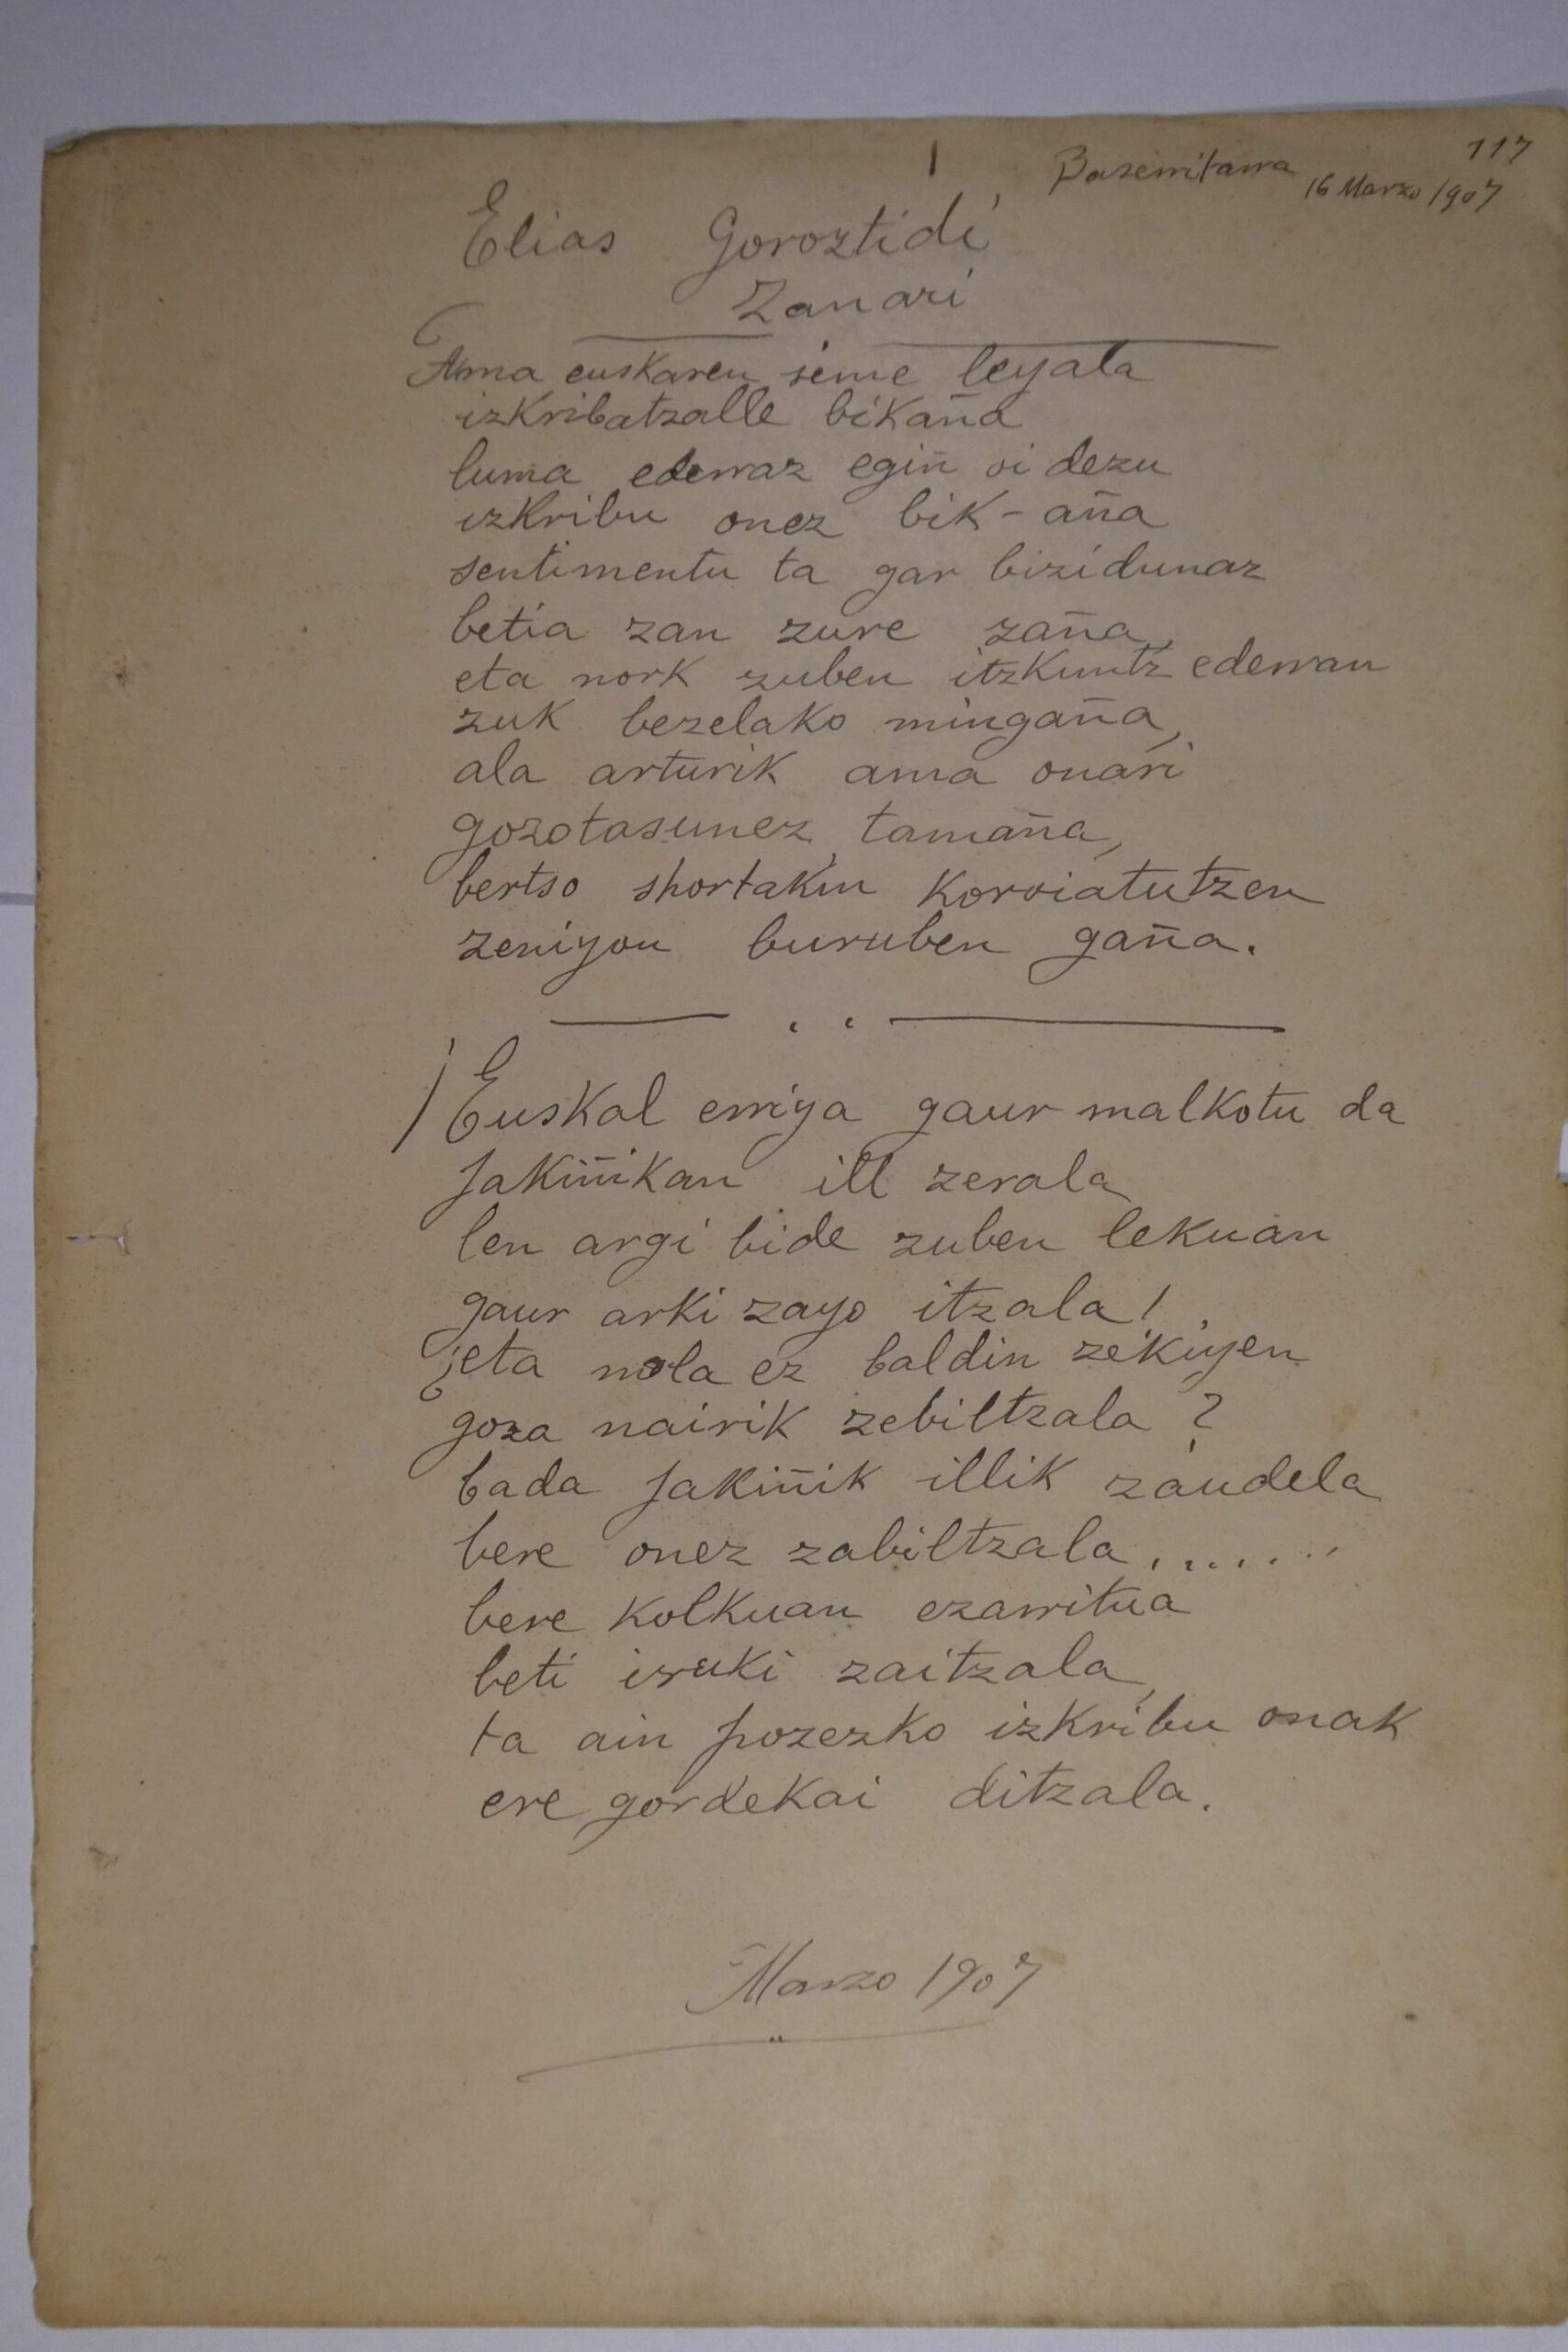 117
1
Baserritarra
16 Marzo 1907
Elias Goroztidi
Zanari
Ama euskaren seme leyala
izkribatzalle bikaña
luma ederraz egiñ oi dezu
izkribu onez bik-aña
sentimentu ta gar bizidunaz
betia zan zure zaña,
eta nork zuben itzkuntz ederran
zuk bezelako mingaña,
ala arturik ama onari
gozotasunez tamaña,
bertso shortakin koroiatutzen
zeniyon buruben gaña.
¡Euskal erriya gaur malkotu da
jakiñikan ill zerala
len argi bide zuben lekuan
gaur arki zayo itzala!
¿eta nola ez baldin zekiyen
goza nairik zebiltzala?
bada jakiñik illik zaudela
bere onez zabiltzala.......
bere kolkuan ezarritua
beti iruki zaitzala,
ta ain pozezko izkribu onak
ere gordekai ditzala.
Marzo 1907